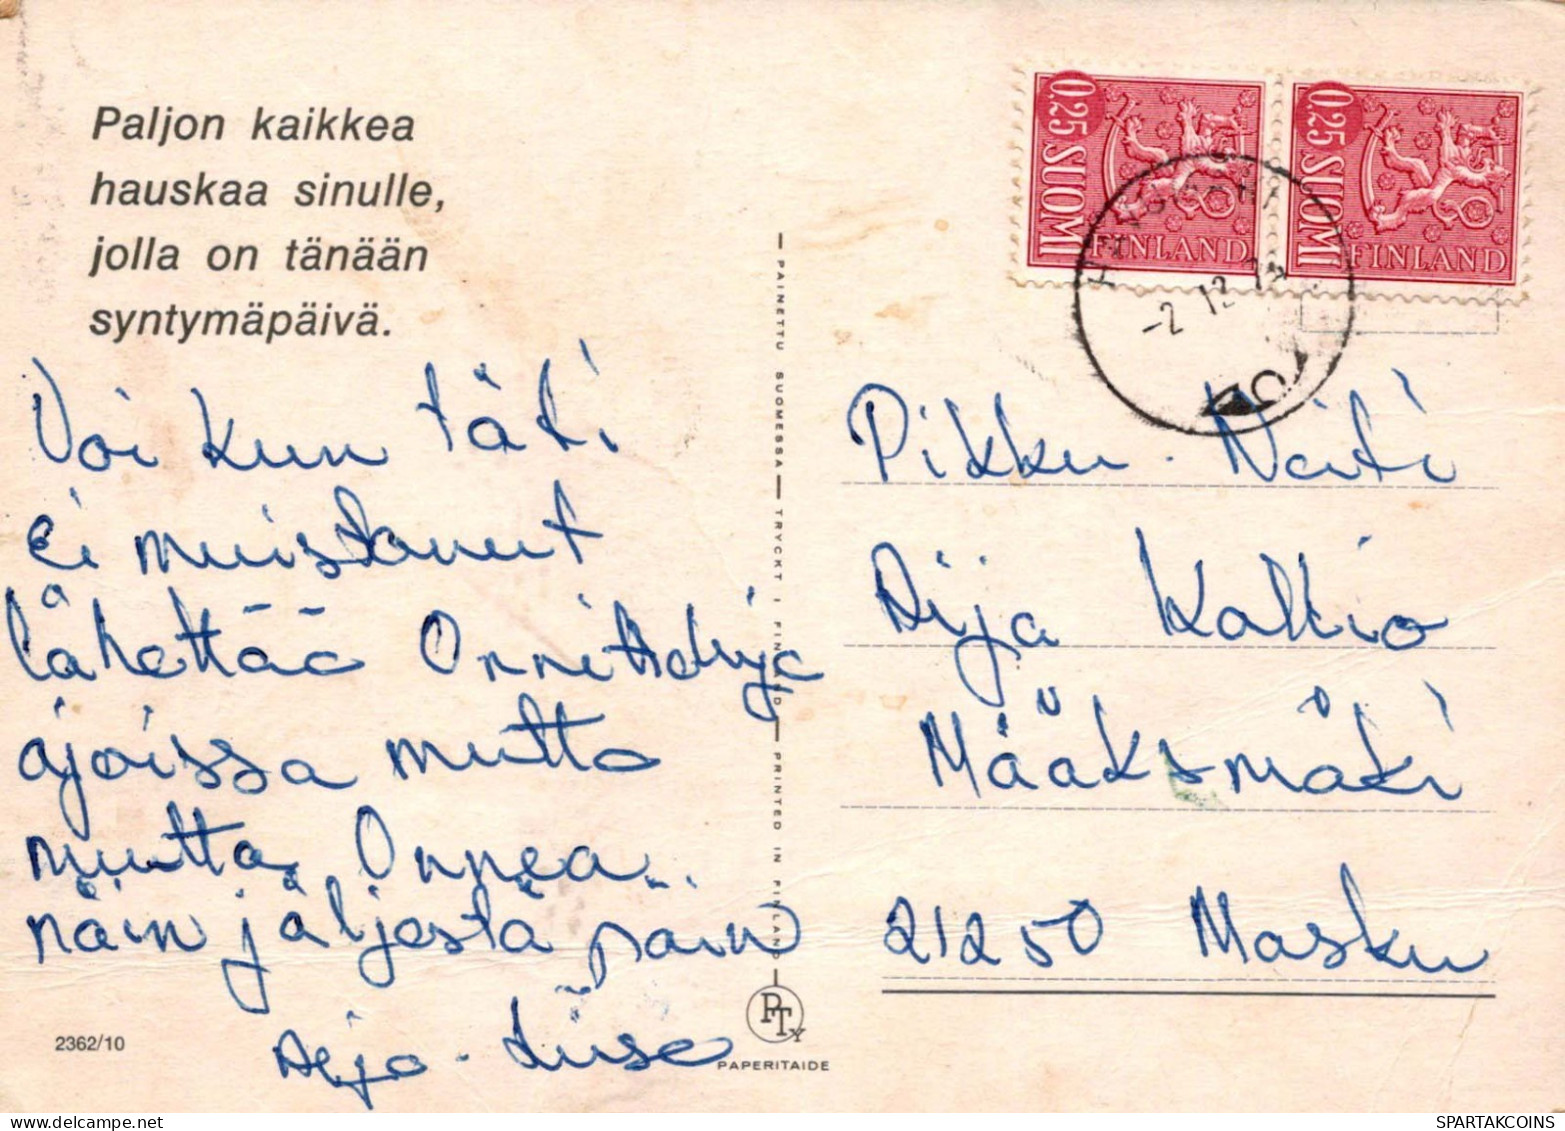 Paljon kaikkea
hauskaa sinulle,
jolla on tänään
syntymäpäivä.
Voi kun täti
ei muistanut
lähettää Onnitteluja
ajoissa mutta
mutta Onnea
näin jäljestä päin
Liisa
2362/10
PAINETTU SUOMESSA — TRYCKT I FINLAND — PRINTED IN FINLAND
PTy
PAPERITAIDE
0.25 SUOMI
FINLAND
0.25 SUOMI
FINLAND
-2.12.75
Pikku-Neiti
Aija Kallio
Määksmäki
21250 Masku
SPARTAKCOINS